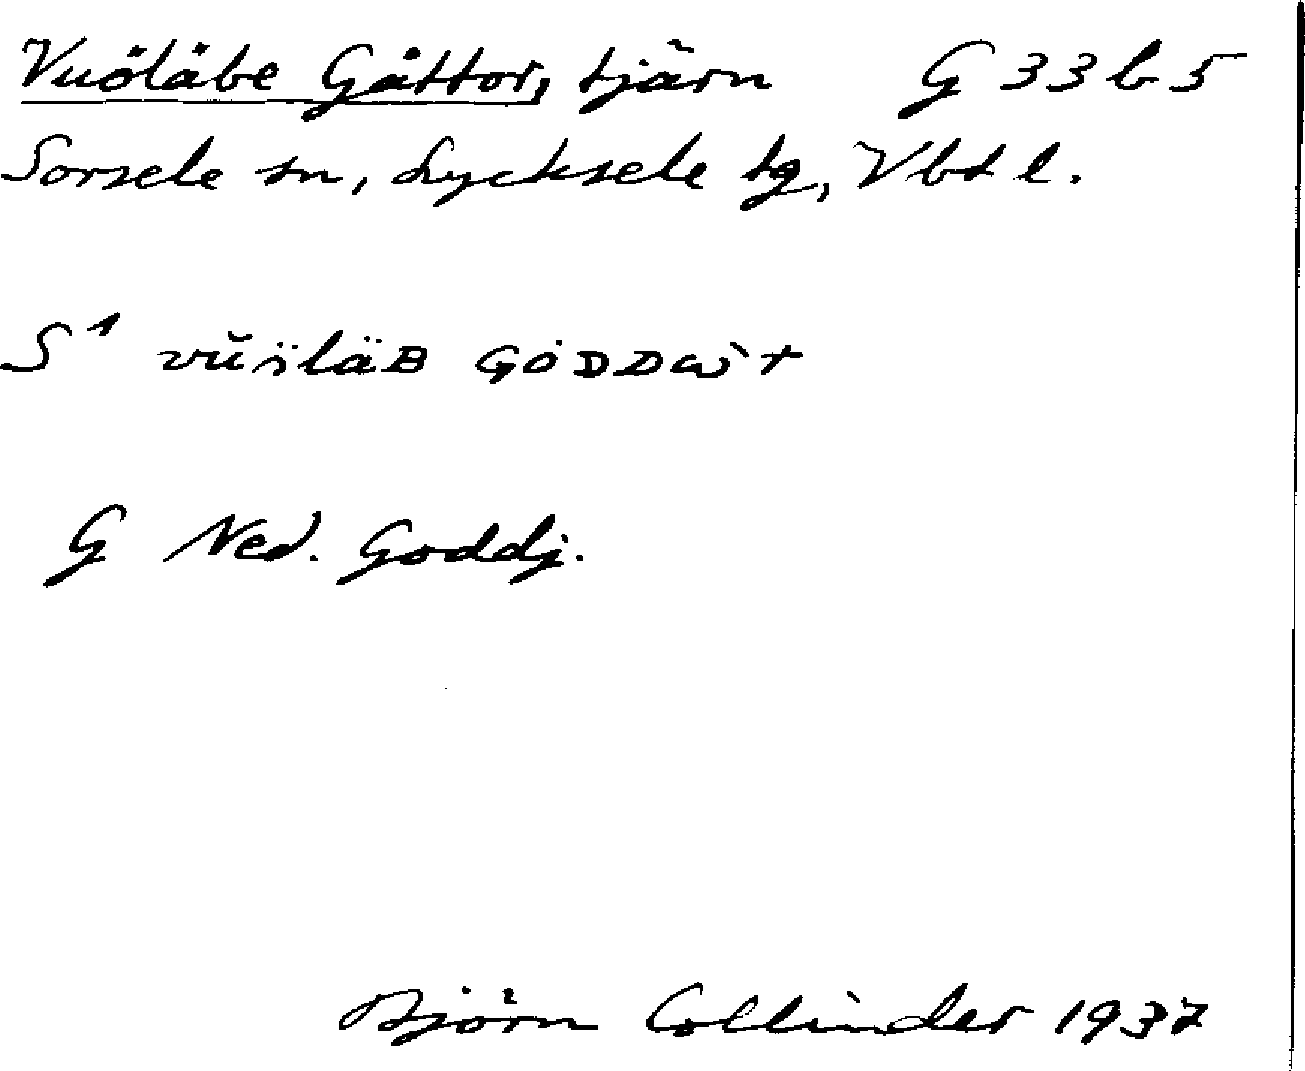 Vuöläbe Gåttor, tjärn G 33 b 5
Sorsele sn, Lycksele tg, Vbtl.
S¹ 
G Ned. Goddj.
Björn Collinder 1937